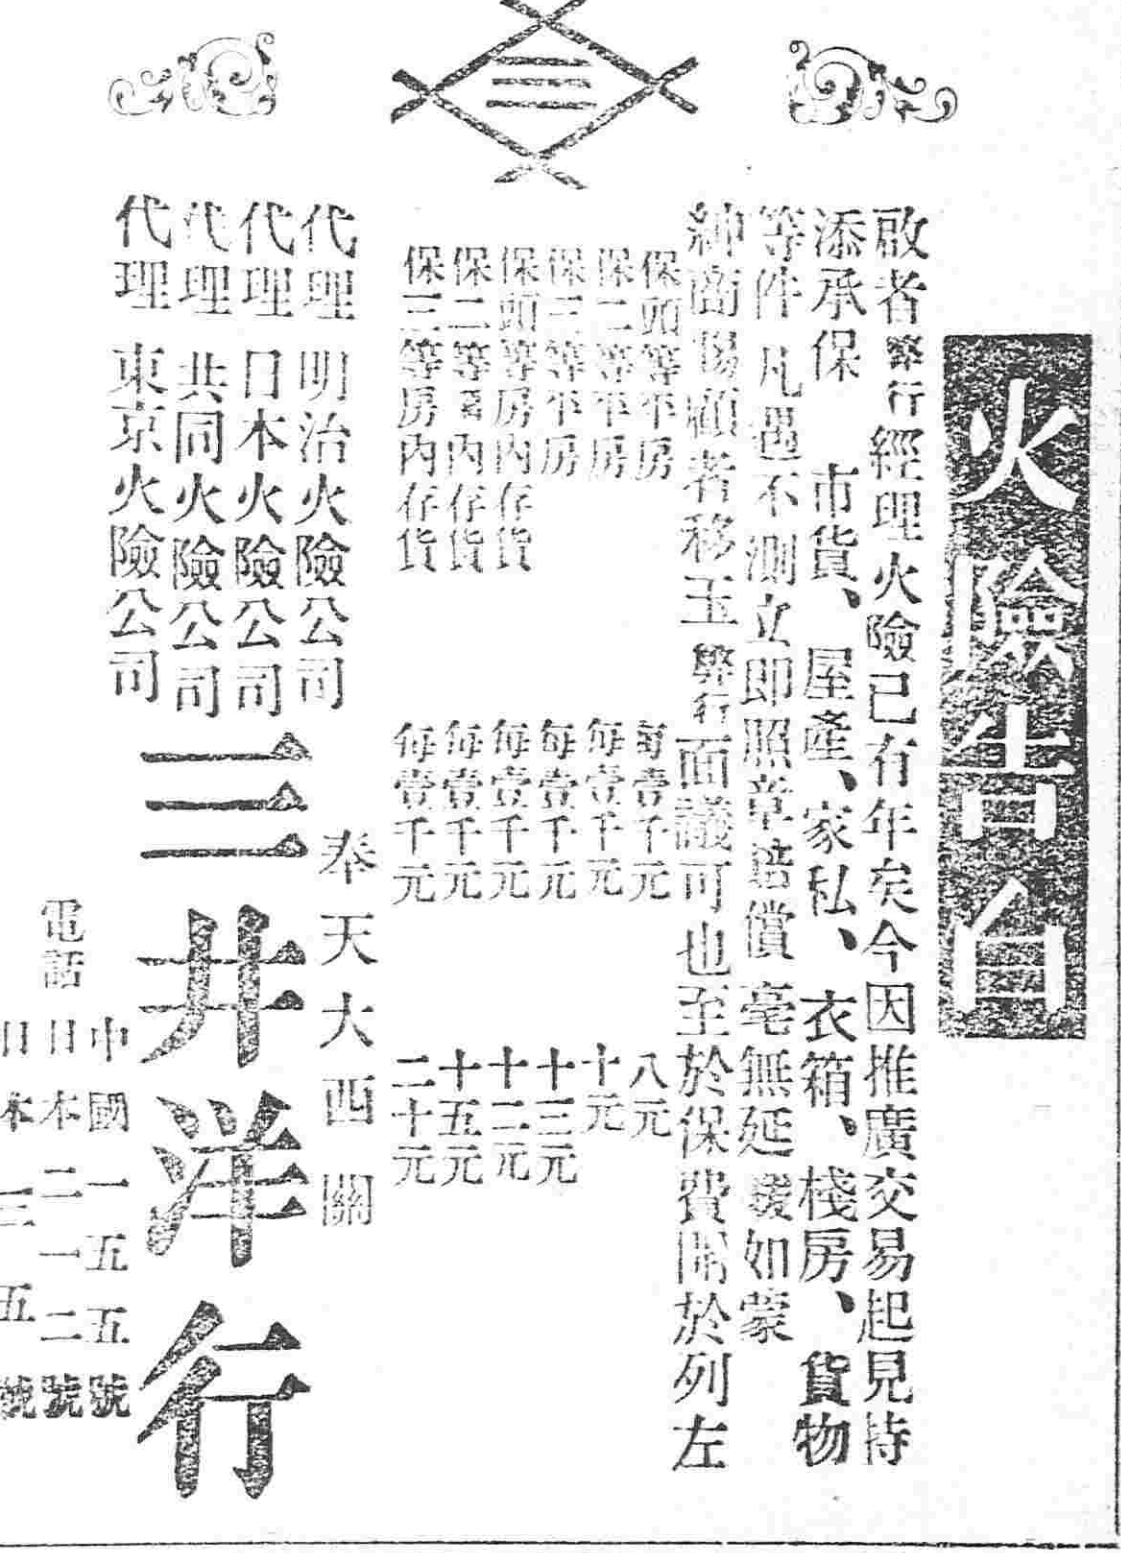 火險告白
啟者弊行經理火險已有年矣今因推廣交易起見特
添承保 市貨、屋產、家私、衣箱、棧房、貨物
等件凡遇不測立即照章賠償毫無延緩如蒙
紳商賜顧者移玉弊行面議可也至於保費開於列左
保頭等平房 每壹千元 八元
保二等平房 每壹千元 十元
保三等平房 每壹千元 十三元
保頭等房內存貨 每壹千元 十二元
保二等房內存貨 每壹千元 十五元
保三等房內存貨 每壹千元 二十元
奉天大西關
代理 明治火險公司
代理 日本火險公司
代理 共同火險公司
代理 東京火險公司
三井洋行
中國一五五號
電話 日本二一二號
日本三五號